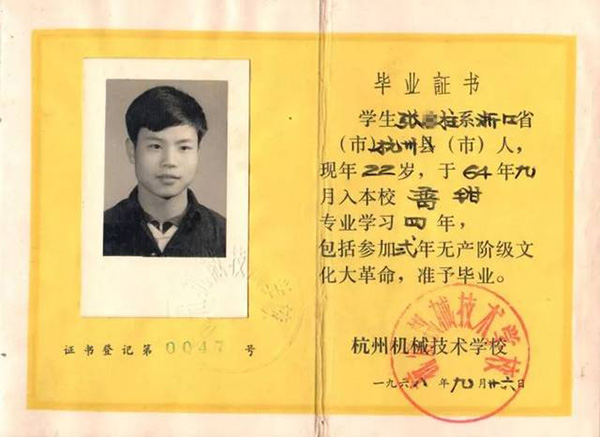 毕业証书
学生张柱系浙江省
（市）杭州县（市）人，
现年22岁，于64年九
月入本校 钳
专业学习四年，
包括参加弍年无产阶级文
化大革命，准予毕业。
杭州机械技术学校
一九六八年九月廿六日
证书登记第0047号
机械技术学校